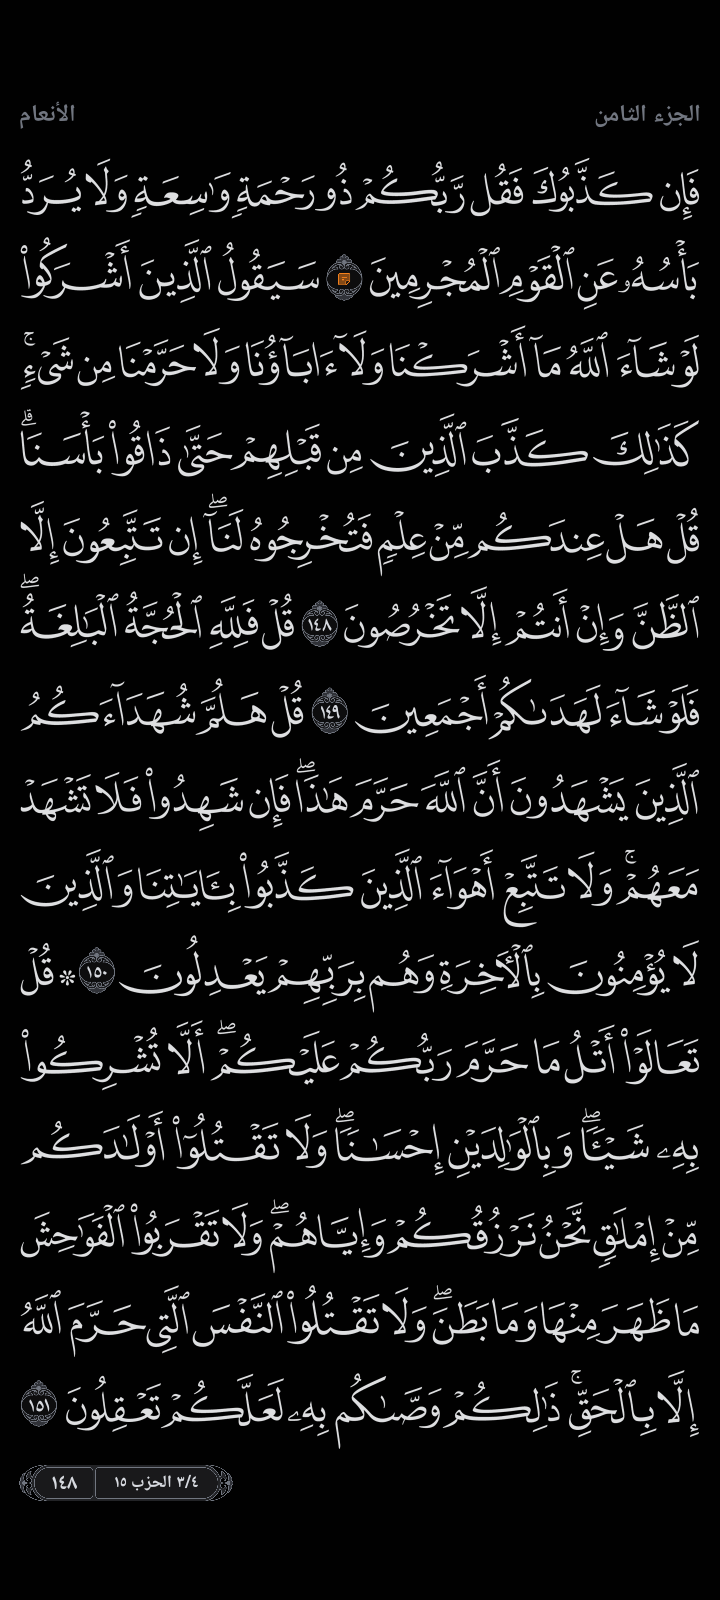 الجزء الثامن
الأنعام
فَإِن كَذَّبُوكَ فَقُل رَّبُّكُمۡ ذُو رَحۡمَةٖ وَٰسِعَةٖ وَلَا يُرَدُّ
بَأۡسُهُۥ عَنِ ٱلۡقَوۡمِ ٱلۡمُجۡرِمِينَ سَيَقُولُ ٱلَّذِينَ أَشۡرَكُواْ
لَوۡ شَآءَ ٱللَّهُ مَآ أَشۡرَكۡنَا وَلَآ ءَابَآؤُنَا وَلَا حَرَّمۡنَا مِن شَيۡءٖۚ
كَذَٰلِكَ كَذَّبَ ٱلَّذِينَ مِن قَبۡلِهِمۡ حَتَّىٰ ذَاقُواْ بَأۡسَنَاۗ
قُلۡ هَلۡ عِندَكُم مِّنۡ عِلۡمٖ فَتُخۡرِجُوهُ لَنَآۖ إِن تَتَّبِعُونَ إِلَّا
ٱلظَّنَّ وَإِنۡ أَنتُمۡ إِلَّا تَخۡرُصُونَ ١٤٨ قُلۡ فَلِلَّهِ ٱلۡحُجَّةُ ٱلۡبَٰلِغَةُۖ
فَلَوۡ شَآءَ لَهَدَىٰكُمۡ أَجۡمَعِينَ ١٤٩ قُلۡ هَلُمَّ شُهَدَآءَكُمُ
ٱلَّذِينَ يَشۡهَدُونَ أَنَّ ٱللَّهَ حَرَّمَ هَٰذَاۖ فَإِن شَهِدُواْ فَلَا تَشۡهَدۡ
مَعَهُمۡۚ وَلَا تَتَّبِعۡ أَهۡوَآءَ ٱلَّذِينَ كَذَّبُواْ بِـَٔايَٰتِنَا وَٱلَّذِينَ
لَا يُؤۡمِنُونَ بِٱلۡأٓخِرَةِ وَهُم بِرَبِّهِمۡ يَعۡدِلُونَ ١٥٠ ۞ قُلۡ
تَعَالَوۡاْ أَتۡلُ مَا حَرَّمَ رَبُّكُمۡ عَلَيۡكُمۡۖ أَلَّا تُشۡرِكُواْ
بِهِۦ شَيۡـٔٗاۖ وَبِٱلۡوَٰلِدَيۡنِ إِحۡسَٰنٗاۖ وَلَا تَقۡتُلُوٓاْ أَوۡلَٰدَكُم
مِّنۡ إِمۡلَٰقٖ نَّحۡنُ نَرۡزُقُكُمۡ وَإِيَّاهُمۡۖ وَلَا تَقۡرَبُواْ ٱلۡفَوَٰحِشَ
مَا ظَهَرَ مِنۡهَا وَمَا بَطَنَۖ وَلَا تَقۡتُلُواْ ٱلنَّفۡسَ ٱلَّتِي حَرَّمَ ٱللَّهُ
إِلَّا بِٱلۡحَقِّۚ ذَٰلِكُمۡ وَصَّىٰكُم بِهِۦ لَعَلَّكُمۡ تَعۡقِلُونَ ١٥١
٣/٤ الحزب ١٥
١٤٨